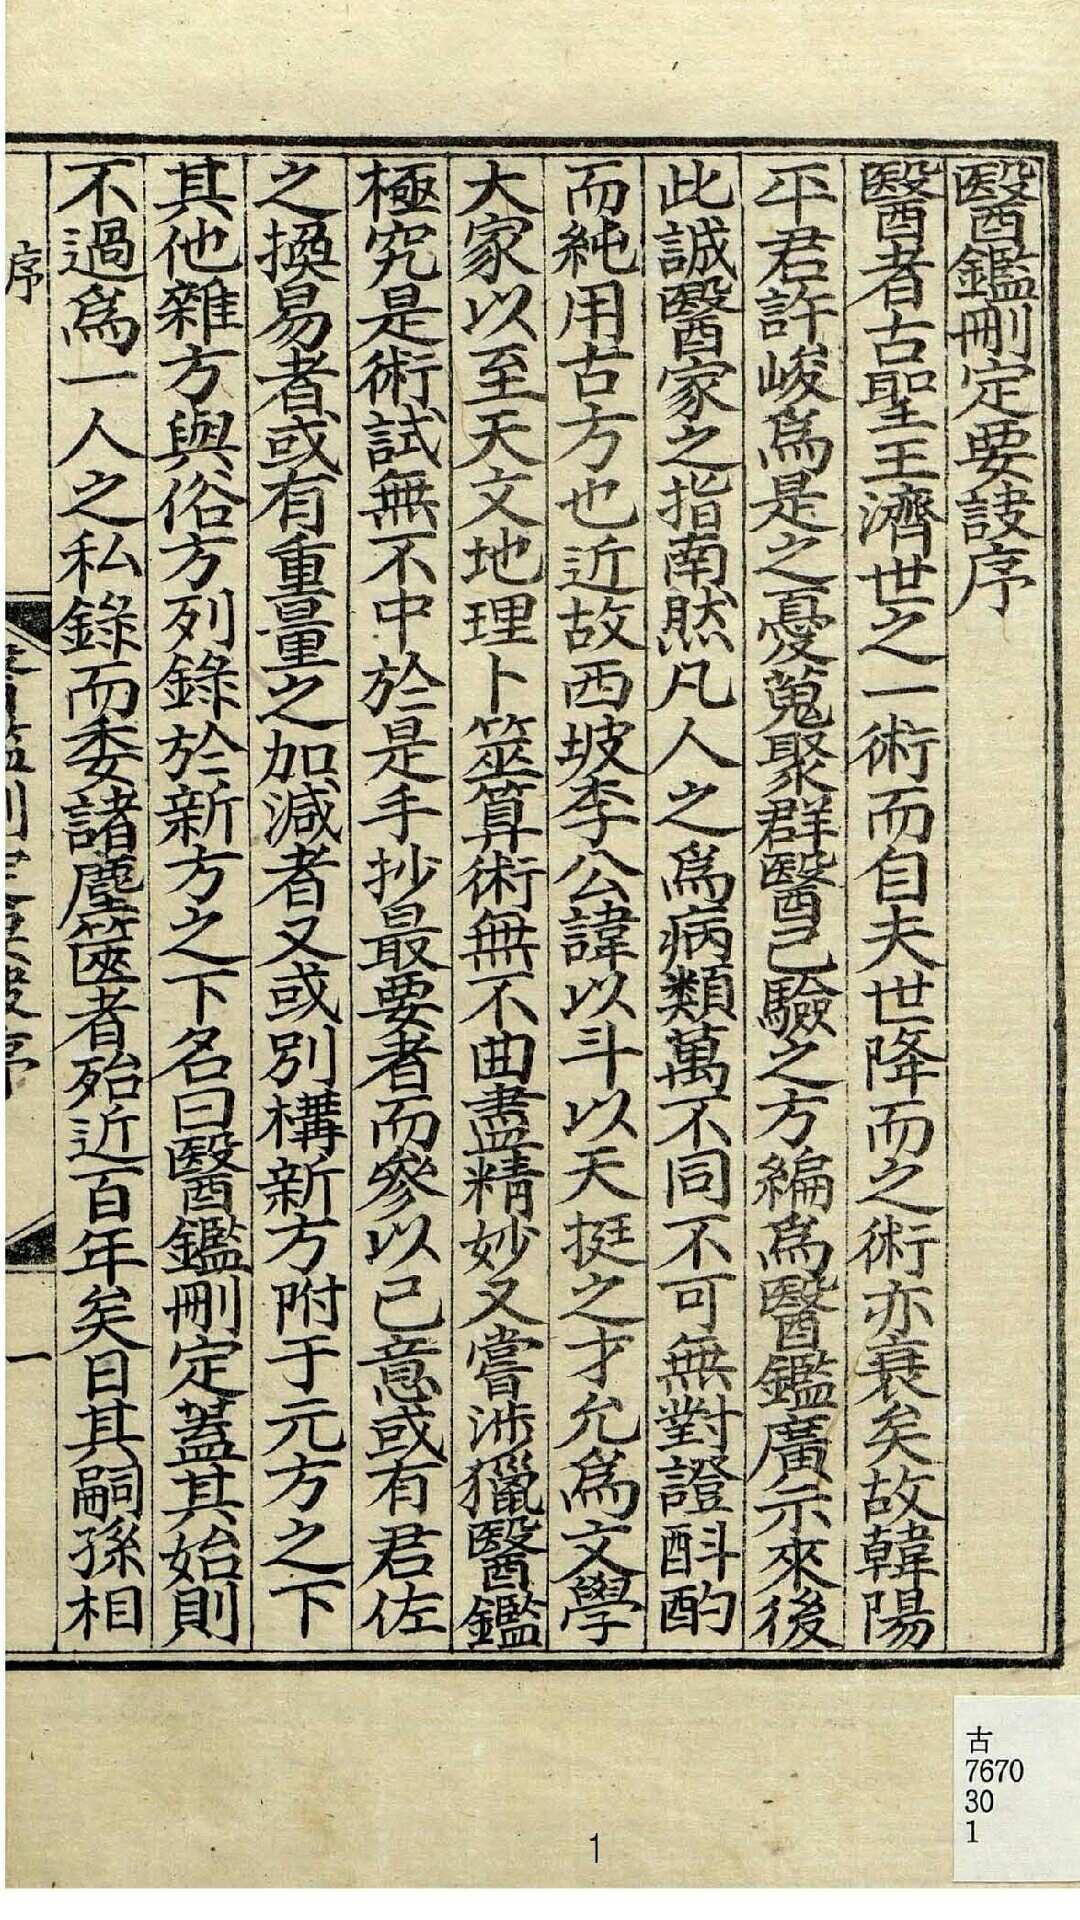 醫鑑刪定要訣序
醫者古聖王濟世之一術而自夫世降而之術亦衰矣故韓陽
平君許峻爲是之憂蒐聚群醫己驗之方編爲醫鑑廣示來後
此誠醫家之指南然凡人之爲病類萬不同不可無對證斟酌
而純用古方也近故西坡李公諱以斗以天挺之才允爲文學
大家以至天文地理卜筮算術無不曲盡精妙又嘗涉獵醫鑑
極究是術試無不中於是手抄最要者而參以己意或有君佐
之換易者或有重量之加減者又或別構新方附于元方之下
其他雜方與俗方列錄於新方之下名曰醫鑑刪定蓋其始則
不過爲一人之私錄而委諸塵篋者殆近百年矣日其嗣孫相
序
醫鑑刪定要訣序
一
古
7670
30
1
1